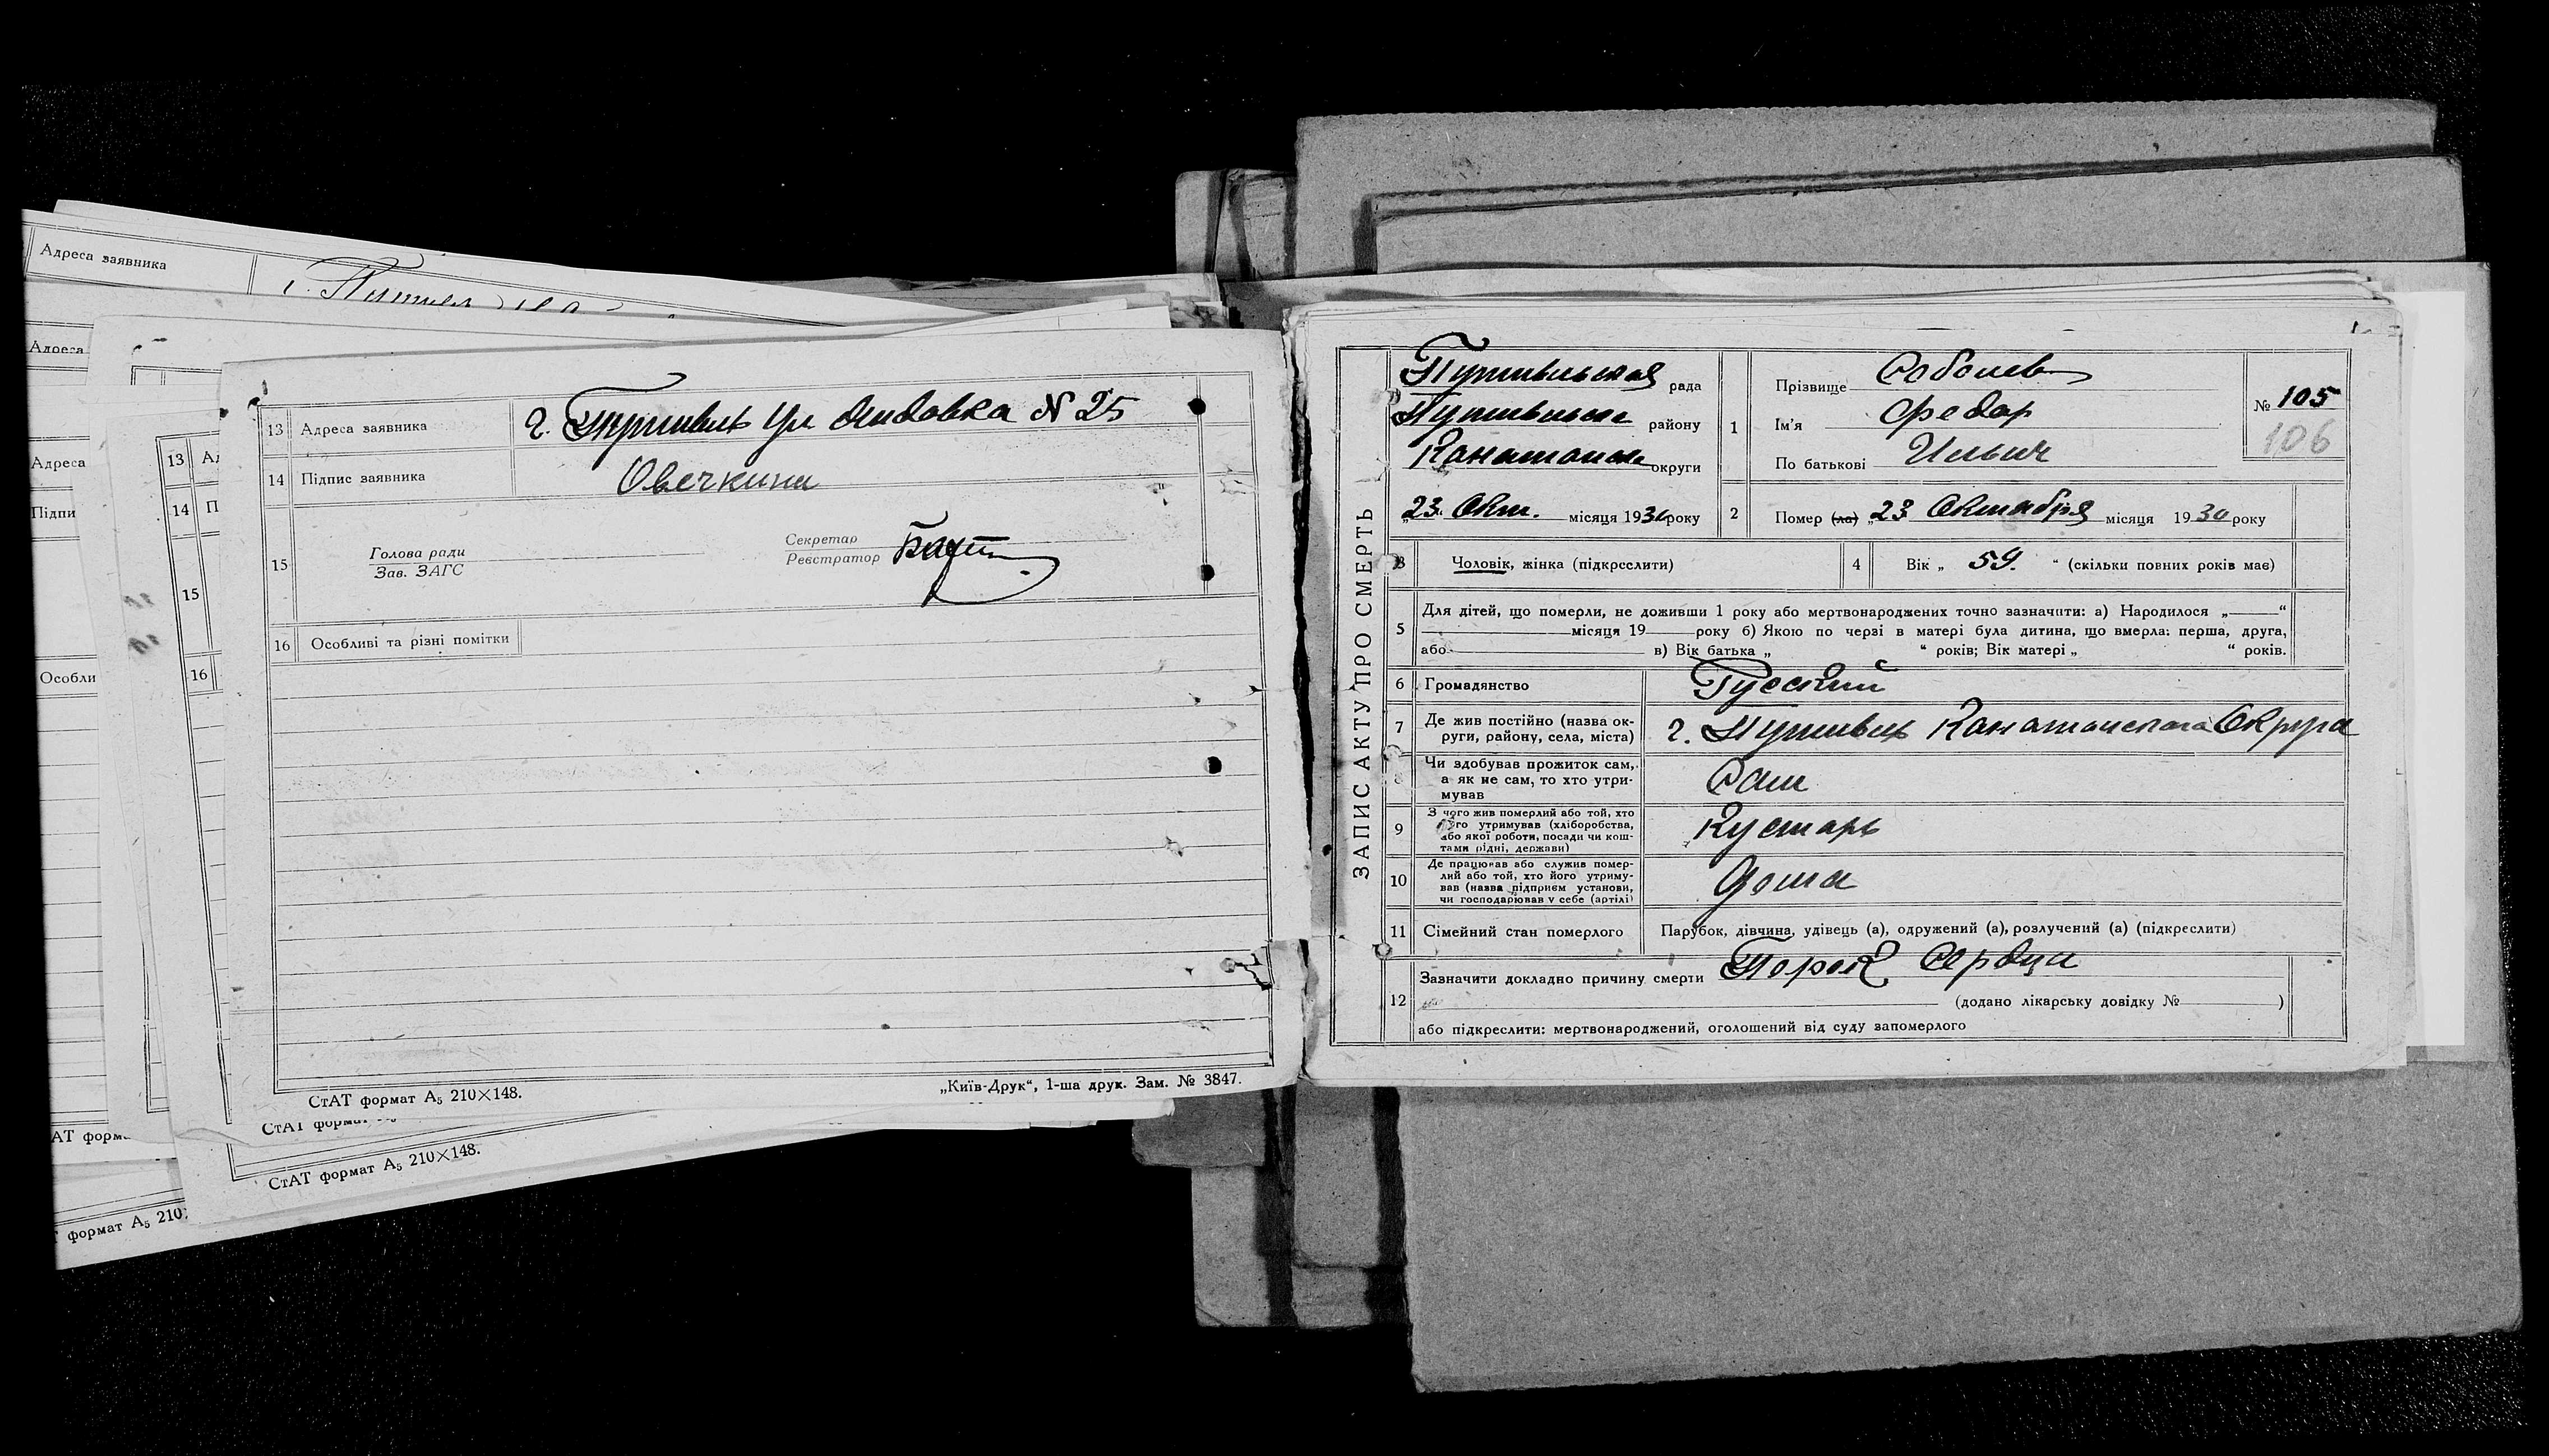 Адреса заявника
г. Путивл
Адреса
Адреса
Підпи
Особли
13
14 П
15
16
13 Адреса заявника г. Путивль ул Лидовка N 25
14 Підпис заявника Овечкина
15 Голова ради
Зав. ЗАГС
Секретар
Реєстратор
16 Особливі та різні помітки
СтАТ формат А5 210×148.
„Київ-Друк“, 1-ша друк. Зам. № 3847.
СтАТ формат
АТ форм
СтАТ формат А5 210×148.
формат А5 210
ЗАПИС АКТУ ПРО СМЕРТЬ
Путивльская рада
Путивльск району
Канатопск округи
„23“ Окт. місяця 1930 року
1 Прізвище Соболев
Ім'я Федор
По батькові Ильич
№ 105
106
2 Помер (ла) „23 Октября місяця 1930 року
3 Чоловік, жінка (підкреслити)
4 Вік „ 59. “ (скільки повних років має)
5 Для дітей, що померли, не доживши 1 року або мертвонароджених точно зазначити: а) Народилося „ “
місяця 19 року б) Якою по черзі в матері була дитина, що вмерла: перша, друга,
або в) Вік батька „ “ років; Вік матері „ “ років.
6 Громадянство Русский
7 Де жив постійно (назва ок-
руги, району, села, міста) г. Путивль Канатопскога Округа
Чи здобував прожиток сам,
а як не сам, то хто утри-
мував Сам
9 З чого жив померлий або той, хто
його утримував (хліборобства,
або якої роботи, посади чи кош-
тами рідні, держави) Кустарь
10 Де працював або служив помер-
лий або той, хто його утриму-
вав (назва підприєм установи,
чи господарював у себе (артілі) Дома
11 Сімейний стан померлого Парубок, дівчина, удівець (а), одружений (а), розлучений (а) (підкреслити)
12 Зазначити докладно причину смерти Порок Сердца
(додано лікарську довідку № )
або підкреслити: мертвонароджений, оголошений від суду запомерлого